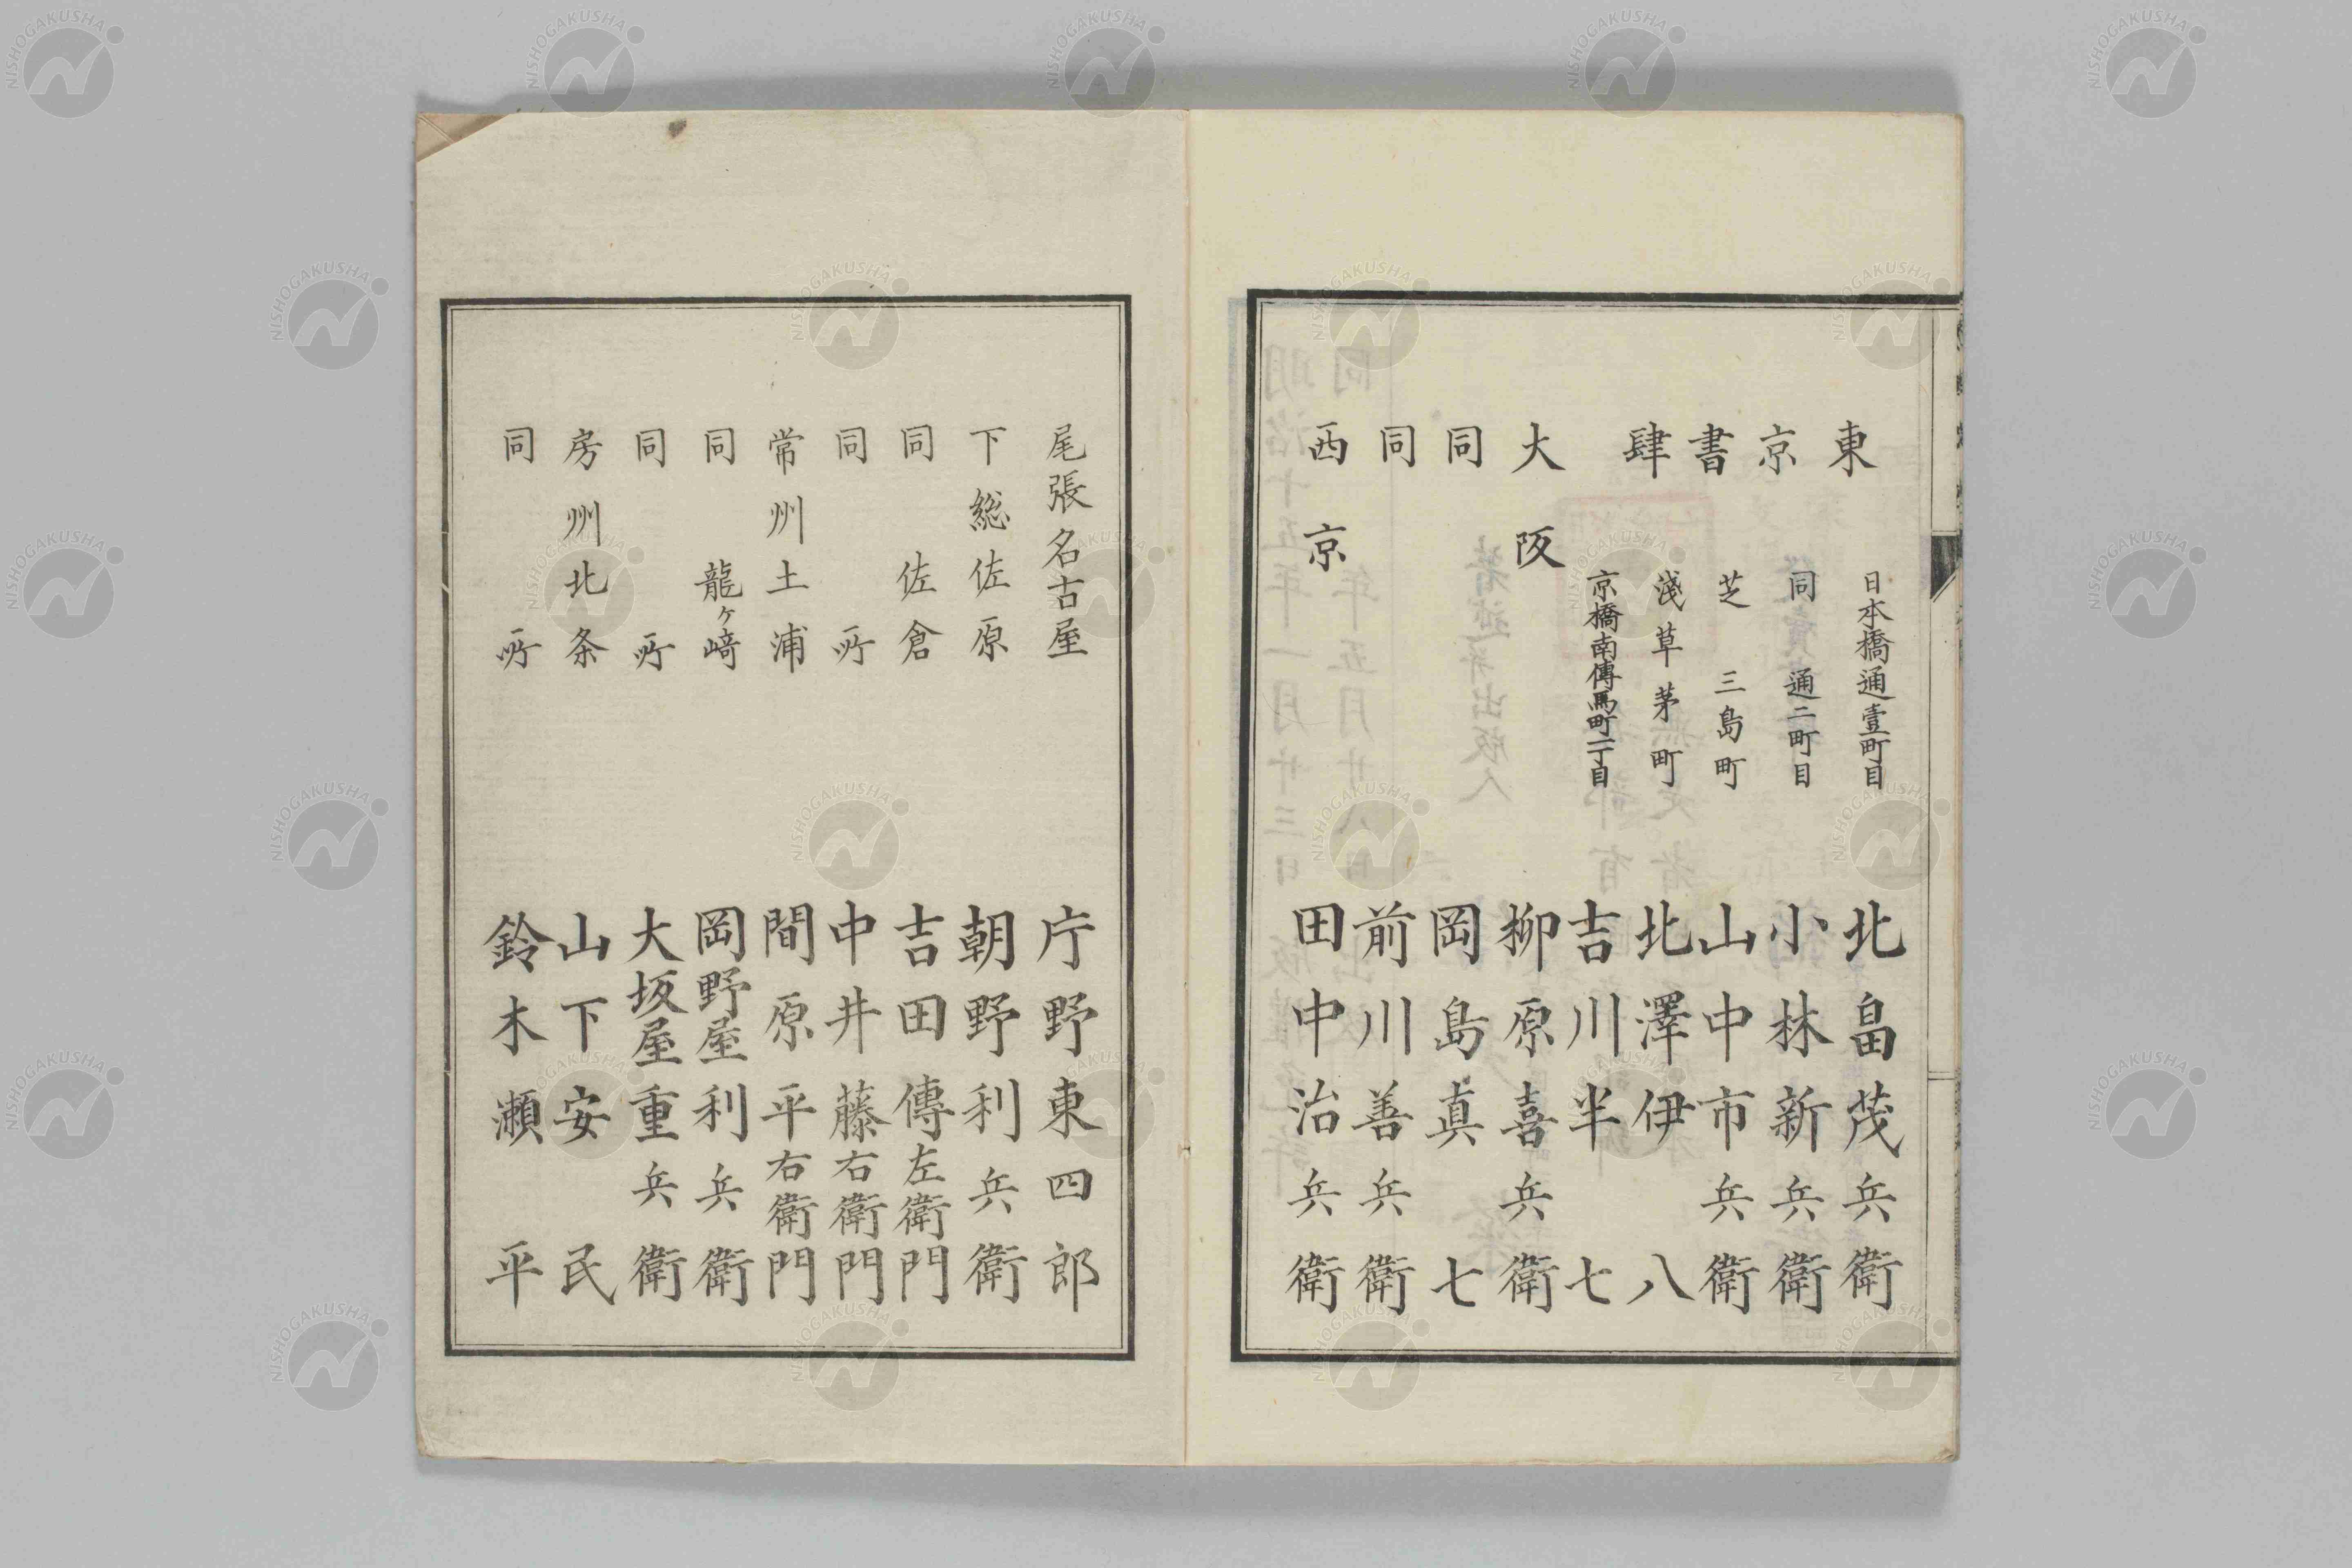 東京書肆
日本橋通壹町目 北畠茂兵衛
同 通二町目 小林新兵衛
芝 三島町 山中市兵衛
淺草茅町 北澤伊八
京橋南傳馬町一丁目 吉川半七
大阪 柳原喜兵衛
同 岡島真七
同 前川善兵衛
西京 田中治兵衛
尾張名古屋 片野東四郎
下総佐原 朝野利兵衛
同 佐倉 吉田傳左衛門
同所 中井藤右衛門
常州土浦 間原平右衛門
同 龍ヶ崎 岡野屋利兵衛
同所 大坂屋重兵衛
房州北条 山下安民
同所 鈴木瀬平
NISHOGAKUSHA